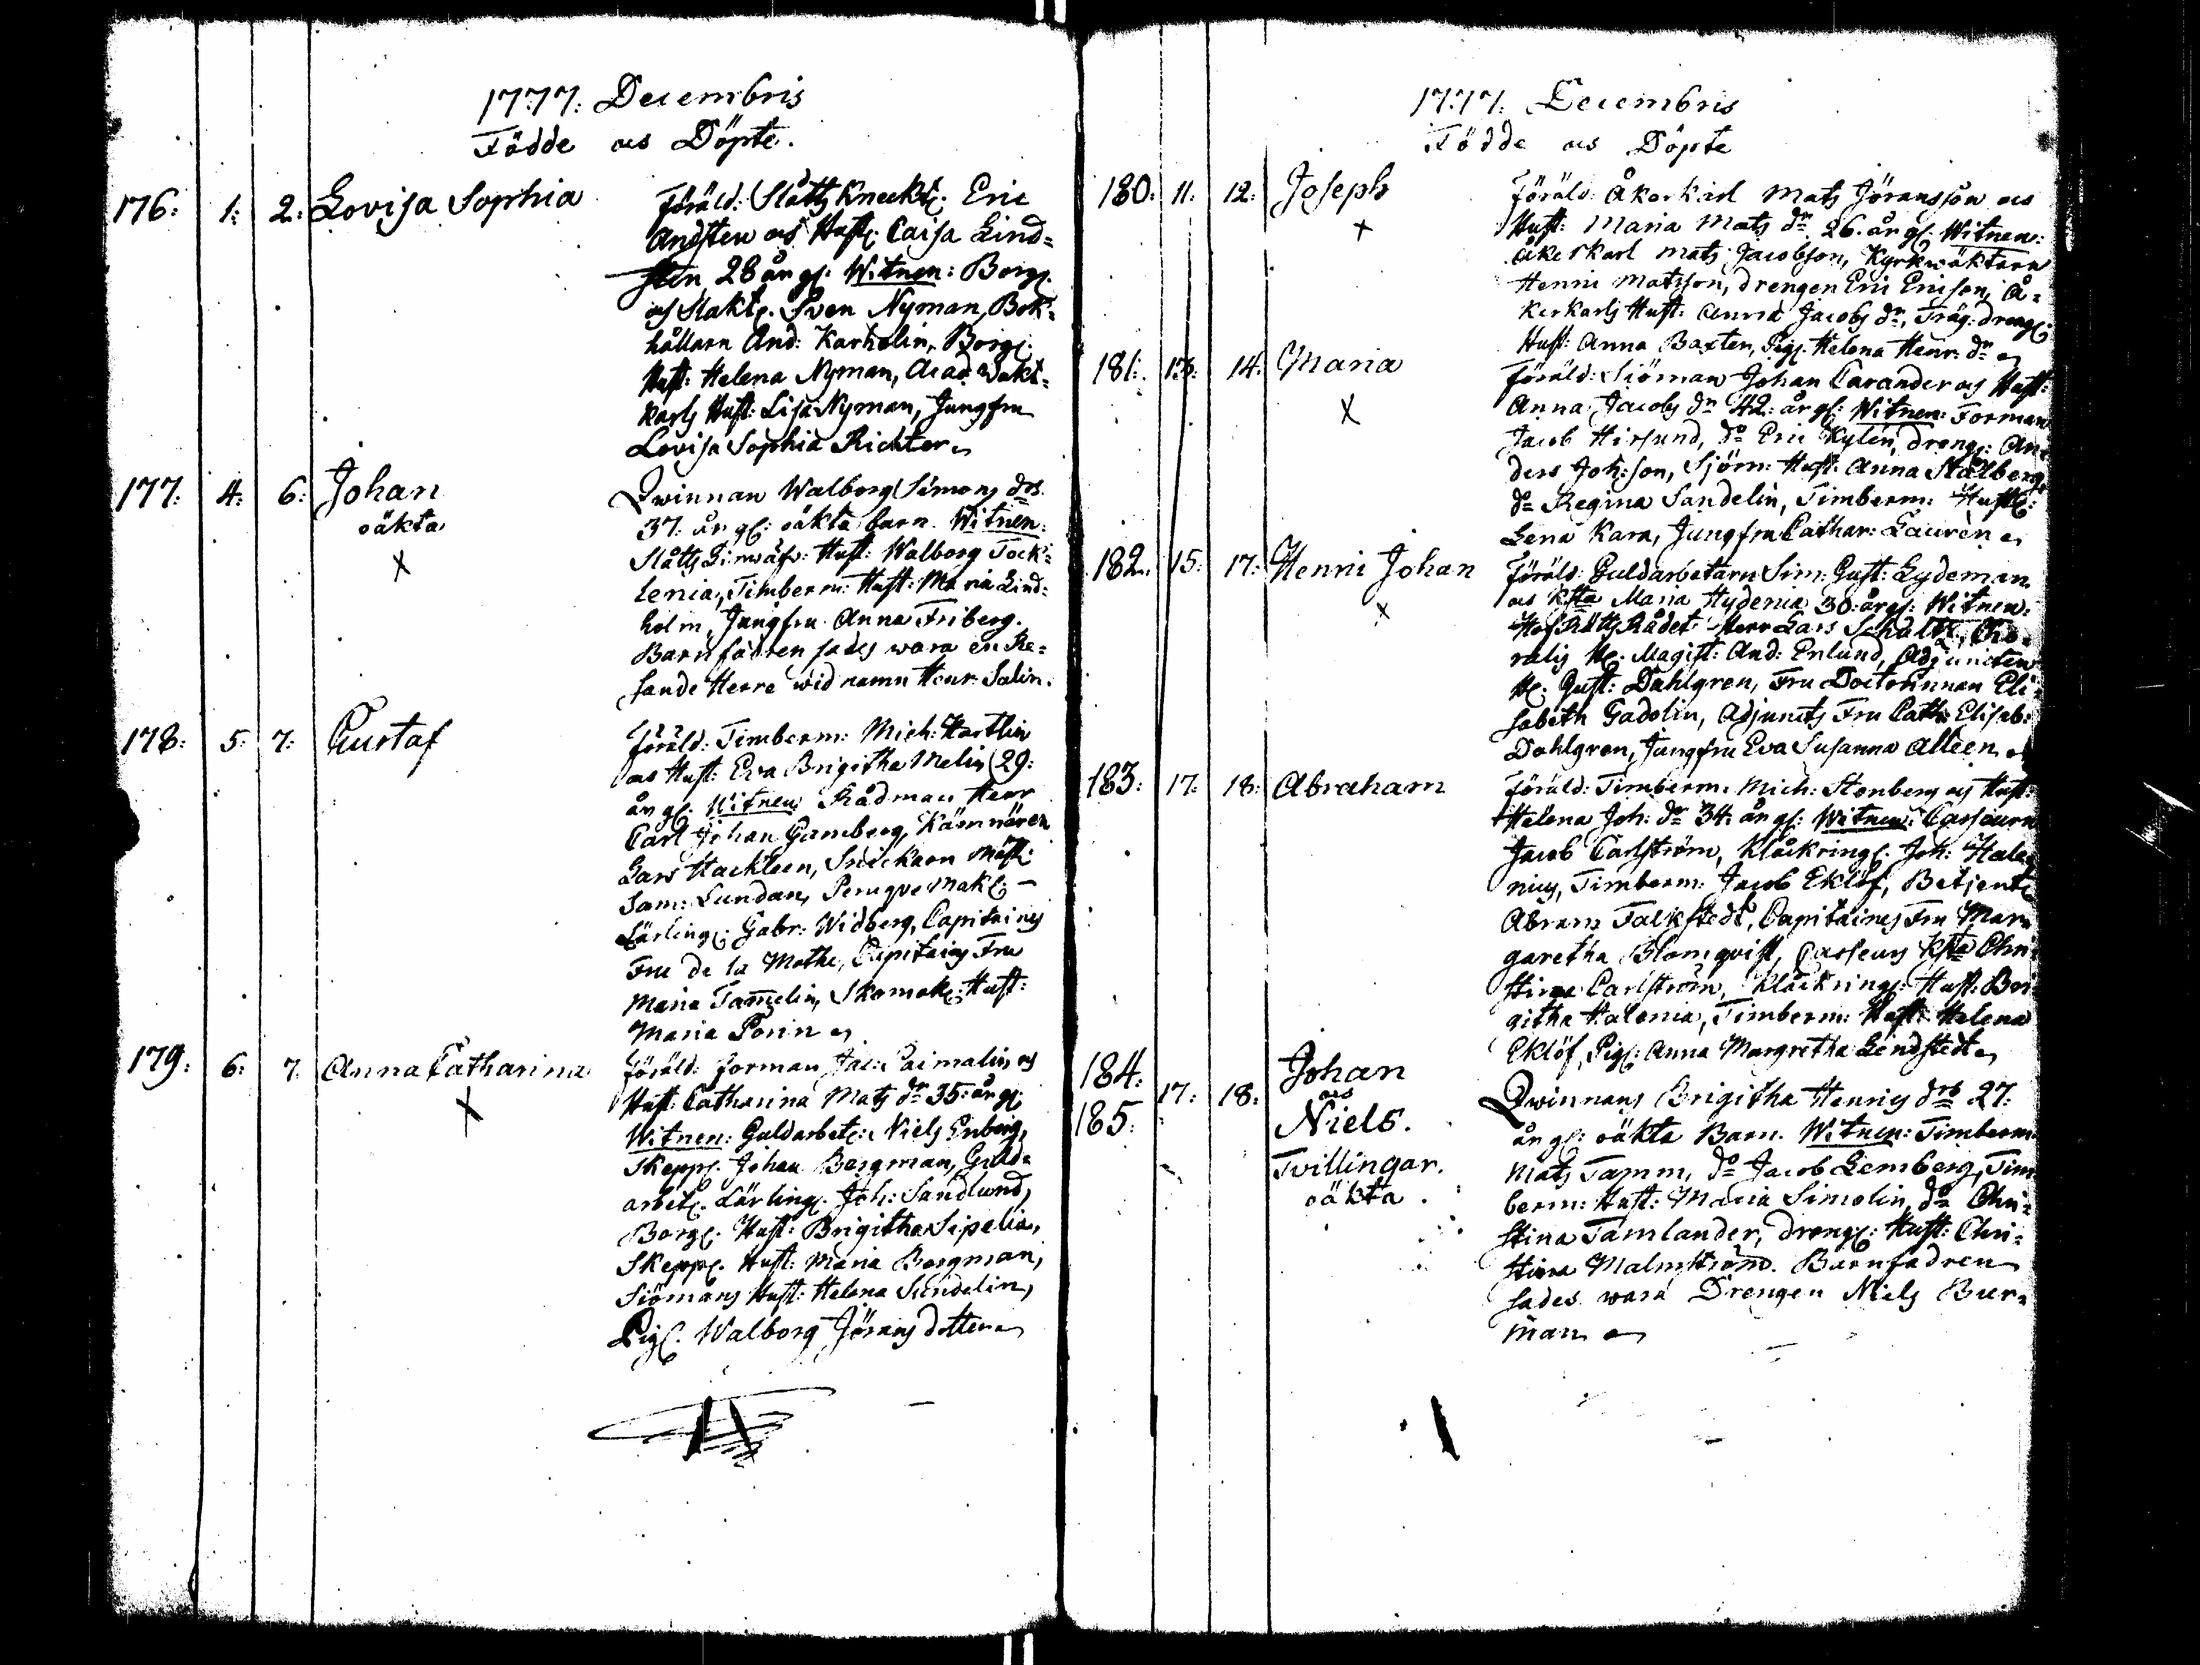 1777. Decembris
Födde och Döpte.
176: 1: 2: Lovisa Sophia Föräld: Slåtts Kneckt: Eric
Andsten och Hust: Caisa Lind=
sten 28 år gl: Witnen: Borg:
och Slakt: Sven Nyman, Bok=
hållarn And: Karholin, Borg:
Hust: Helena Nyman, Acad: Wakt=
karls Hust: Lisa Nyman, Jungfru
Lovisa Sophia Richter
177: 4: 6: Johan Qwinnan Walborg Simons drs
oäkta 37: år gl: oäkta barn. Witnen:
X Slåtts Hust: Walborg Tock=
lenia, Timberm: Hust: Maria Lind=
holm, Jungfru Anna Friberg.
Barnfadren sades wara en Re=
sande Herre wid namn Henr: Salin.
178: 5: 7: Gustaf Föräld: Timberm: Mich: Hartlin
och Hust: Eva Brigitha Melin 29:
år gl: Witnen Rådman Herr
Carl Johan Gamberg, Kämnären
Lars Hackleen, Snickaren Mäst:
Sam: Lundan, Peruqve mak: –
Lärling: Gabr: Widberg, Capitaines
Fru de la Mothe, Capitains Fru
Maria Tammelin, Skomak: Hust:
Maria Porin
179: 6: 7. Anna Catharina Föräld: Forman Jac: Caimalin och
X Hust: Catharina Mats dr 35: år gl:
Witnen: Guldarbet: Niels Enberg,
Skepp: Johan Bergman, Guld=
arbet: Lärling: Joh: Sandlund,
Borg: Hust: Brigitha Sipelia,
Skepp: Hust: Maria Bergman,
Siömans Hust: Helena Sundelin,
Pig: Walborg Jörans dotter
1777. Decembris
Födde och Döpte
180: 11. 12: Joseph Föräld: Åkerkarl Mats Jöransson och
X Hust: Maria Mats dr 26. år gl: Witnen:
Åkerkarl Mats Jacobson, Kyrkwäktarn
Henric Matsson, drengen Eric Ericson, Å=
kerkarls Hust: Anna Jacobs dr, Träg: dreng:
Hust: Anna Baxter, Pig: Helena Henr: dr
181: 13. 14: Maria Föräld: Siöman Johan Carander och Hust:
X Anna Jacobs dr 42: år gl: Witnen: Forman
Jacob Hirsund, do Eric Kylén, dreng: An=
ders Joh:son, Sjöm: Hust: Anna Stålberg,
do Regina Sandelin, Timberm: Hust:
Lena Kara, Jungfru Cathar: Lauren
182. 15. 17: Henric Johan Föräld: Guldarbetarn Sim: Gust: Lydeman
X och Ksta Maria Hydenia 30: år gl: Witnen:
Hof Rätts Rådet Herr Lars Schultz, Cho=
ralis H: Magist: And: Enlund, Adjuncten
H: Gust: Dahlgren, Fru Doctorinnan Eli=
sabeth Gadolin, Adjuncts Fru Cath: Elisab:
Dahlgren, Jungfru Eva Susanna Alleen
183: 17. 18: Abraham Föräld: Timberm: Mich: Stenberg och Hust:
Helena Joh: dr 34: år gl: Witnen: Casseurn
Jacob Carlström, Klåckring: Joh: Hale=
nius, Timberm: Jacob Eklöf, Betjent:
Abram Falkstedt, Capitaines Fru Mar=
garetha Blomqvist, Casseurs Ksta Chri=
stina Carlström, Klåckring: Hust: Bri=
githa Halenia, Timberm: Hust: Helena
Eklöf, Pig: Anna Margretha Lindstedt
184. 17: 18: Johan Qwinnans Brigitha Henrics drs 27.
och
185: Niels. år gl: oäkta Barn. Witnen: Timberm:
Tvillingar. Mats Tamm, do Jacob Lemberg, Tim=
oäkta. berm: Hust: Maria Simolin, do Chri=
stina Tamlander, dreng: Hust: Chri=
stina Malmström. Barnfadren
sades wara Drengen Niels Bur=
man